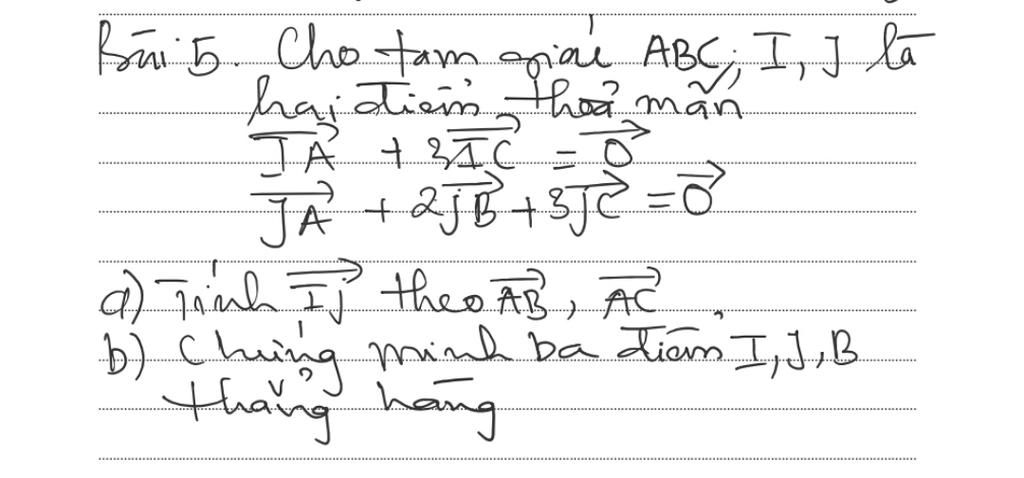 Bài 5. Cho tam giác ABC; I, J là
hai điểm thoả mãn
IA + 3IC = 0
JA + 2JB + 3JC = 0
a) Tính IJ theo AB, AC
b) Chứng minh ba điểm I, J, B
thẳng hàng